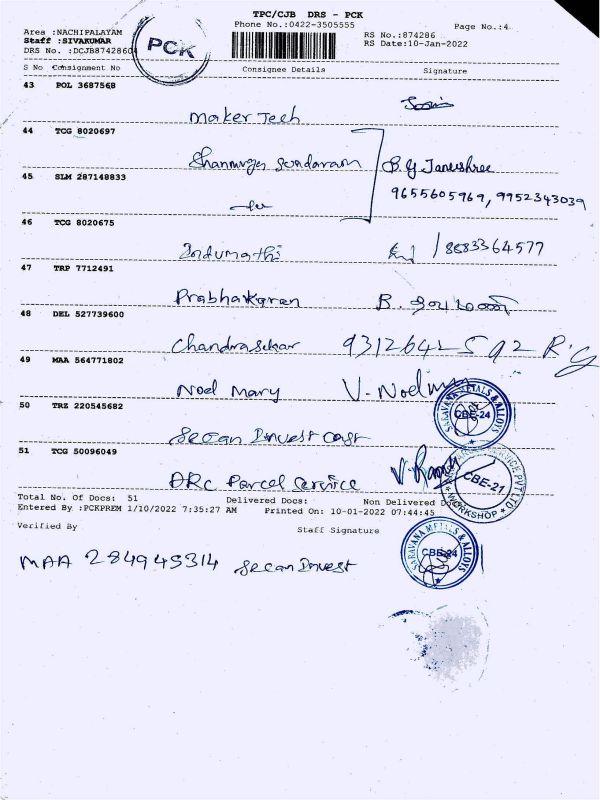 TPC/CJB DRS - PCK
Phone No.:0422-3505555
Page No.:4
Area :NACHIPALAYAM
RS No.:874286
Staff :SIVAKUMAR
RS Date:10-Jan-2022
DRS No. :DCJB8742860
PCK
S No Consignment No Consignee Details Signature
43 POL 3687568
Maker Tech
44 TCG 8020697
Shanmuga Sundaram B.G Janushree
45 SLM 287148833
9655605969, 9952343039
46 TCG 8020675
Indumathi 8883364577
47 TRP 7712491
Prabhakaran B.
48 DEL 527739600
Chandrasekar 9312642592
49 MAA 564771802
Noel Mary V. Noel
50 TRZ 220545682
SARAVANA METALS & ALLOYS CBE-24
Secan Invest Cast
51 TCG 50096049
ARC Parcel Service V.
SERVICE PVT LTD CBE-21 WORKSHOP
Total No. Of Docs: 51 Delivered Docs: Non Delivered Docs
Entered By :PCKPREM 1/10/2022 7:35:27 AM Printed On: 10-01-2022 07:44:45
Verified By Staff Signature
MAA 284945314 Secan Invest
SARAVANA METALS & ALLOYS CBE-24